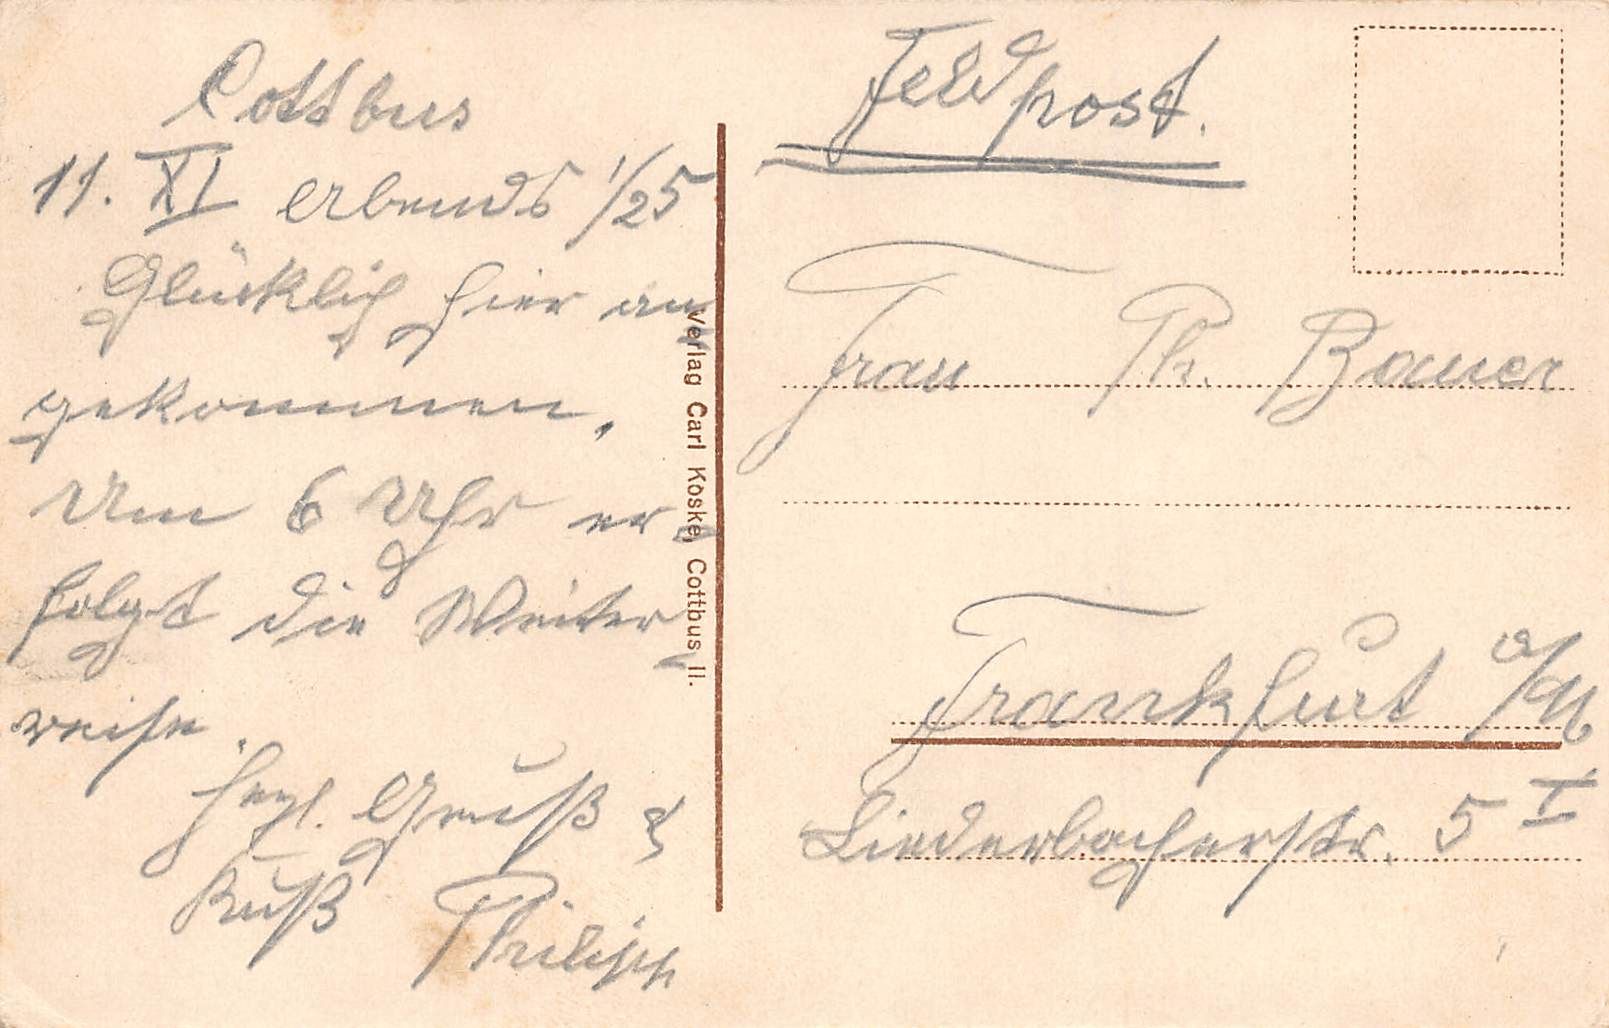 Cottbus
11. XI abends 1/2 5
Glücklich hier an
gekommen,
Um 6 Uhr er-
folgt die Weiter
reise.
Hrzl. Gruß &
Kuß Philipp
Verlag Carl Koske, Cottbus II.
Feldpost.
Frau Ph. Bauer
Frankfurt a/M
Liederbacherstr. 5 I